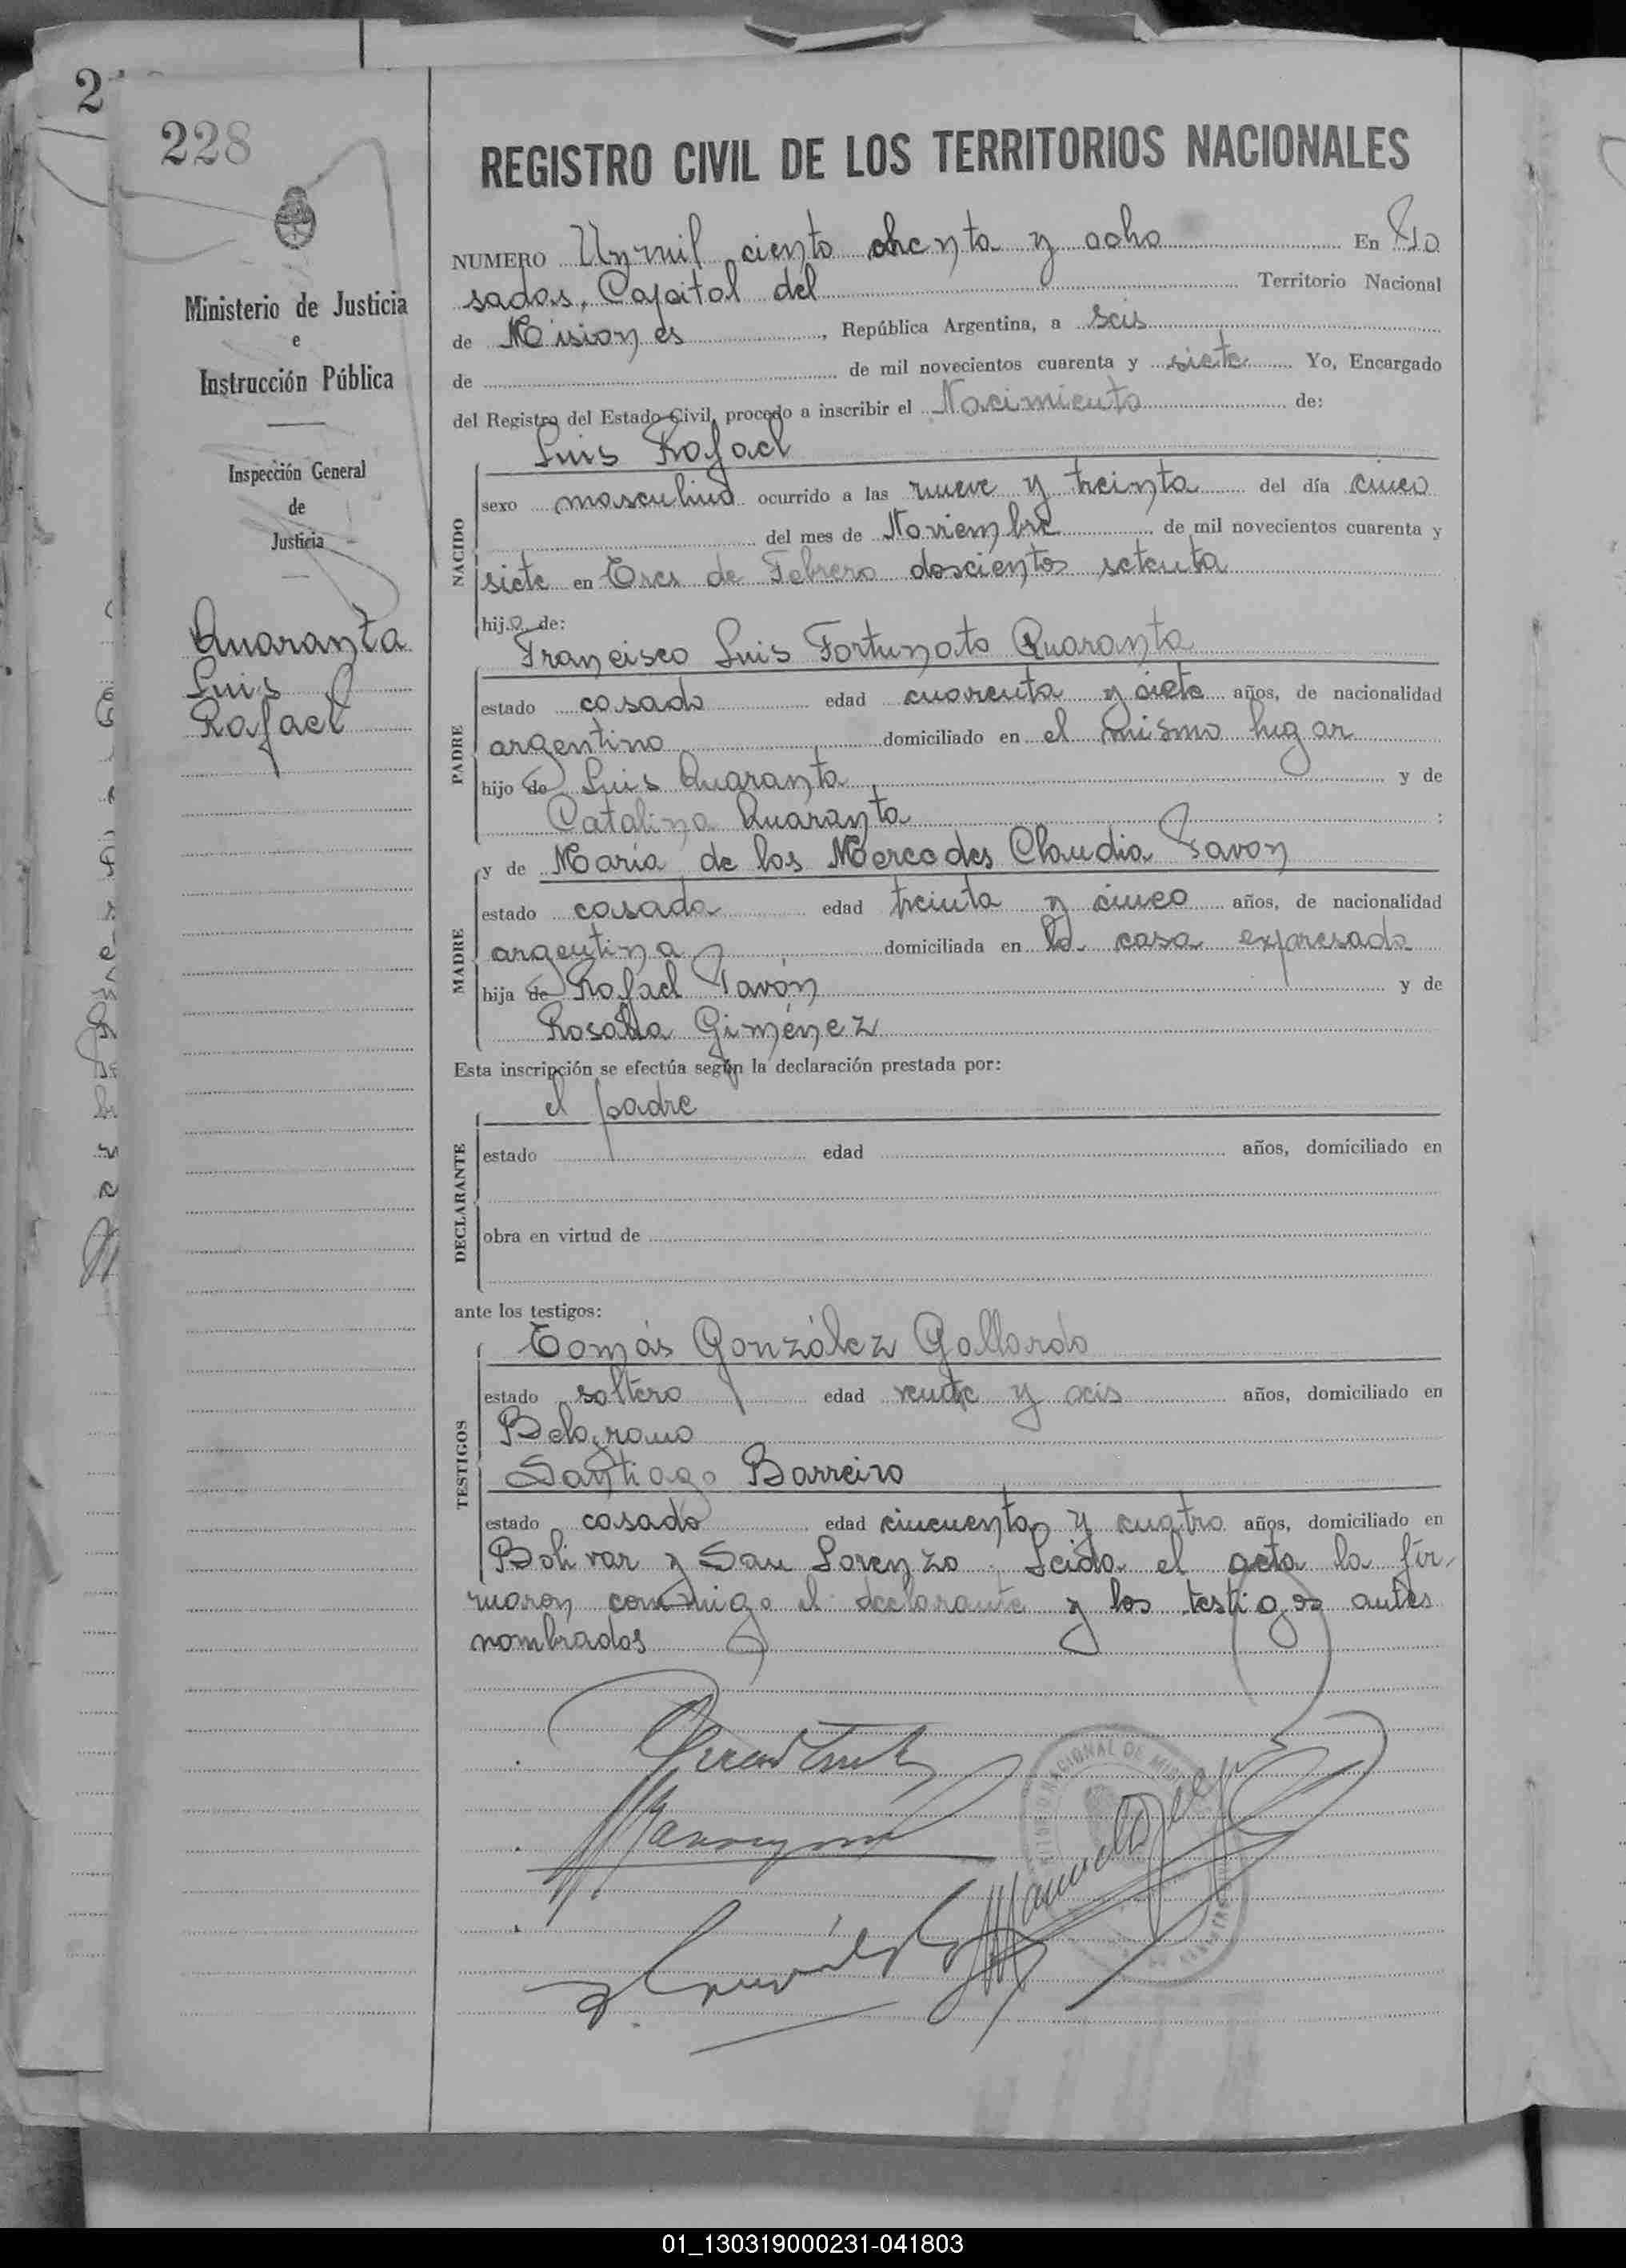 2
228
REGISTRO CIVIL DE LOS TERRITORIOS NACIONALES
NUMERO Un mil ciento ochenta y ocho En Po
sadas, Capital del Territorio Nacional
de Misiones, República Argentina, a seis
de de mil novecientos cuarenta y siete Yo, Encargado
del Registro del Estado Civil, procedo a inscribir el Nacimiento de:
Luis Rafael
Ministerio de Justicia
e
Instrucción Pública
Inspección General
de
Justicia
Quaranta
Luis
Rafael
NACIDO
sexo masculino ocurrido a las nueve y treinta del día cinco
del mes de Noviembre de mil novecientos cuarenta y
siete en Tres de Febrero doscientos setenta
hijo de:
Francisco Luis Fortunato Quaranta
PADRE
estado casado edad cuarenta y siete años, de nacionalidad
argentino domiciliado en el mismo lugar
hijo de Luis Quaranta y de
Catalina Quaranta ;
y de María de las Mercedes Claudia Pavon
MADRE
estado casada edad treinta y cinco años, de nacionalidad
argentina domiciliada en la casa expresada
hija de Rafael Pavón y de
Rosalia Giménez
Esta inscripción se efectúa según la declaración prestada por:
el padre
DECLARANTE
estado edad años, domiciliado en
obra en virtud de
ante los testigos:
Tomás González Gallardo
TESTIGOS
estado soltero edad veinte y seis años, domiciliado en
Belgrano
Santiago Barreiro
estado casado edad cincuenta y cuatro años, domiciliado en
Bolivar y San Lorenzo. Leida el acta la fir-
maron conmigo el declarante y los testigos antes
nombrados
01_130319000231-041803